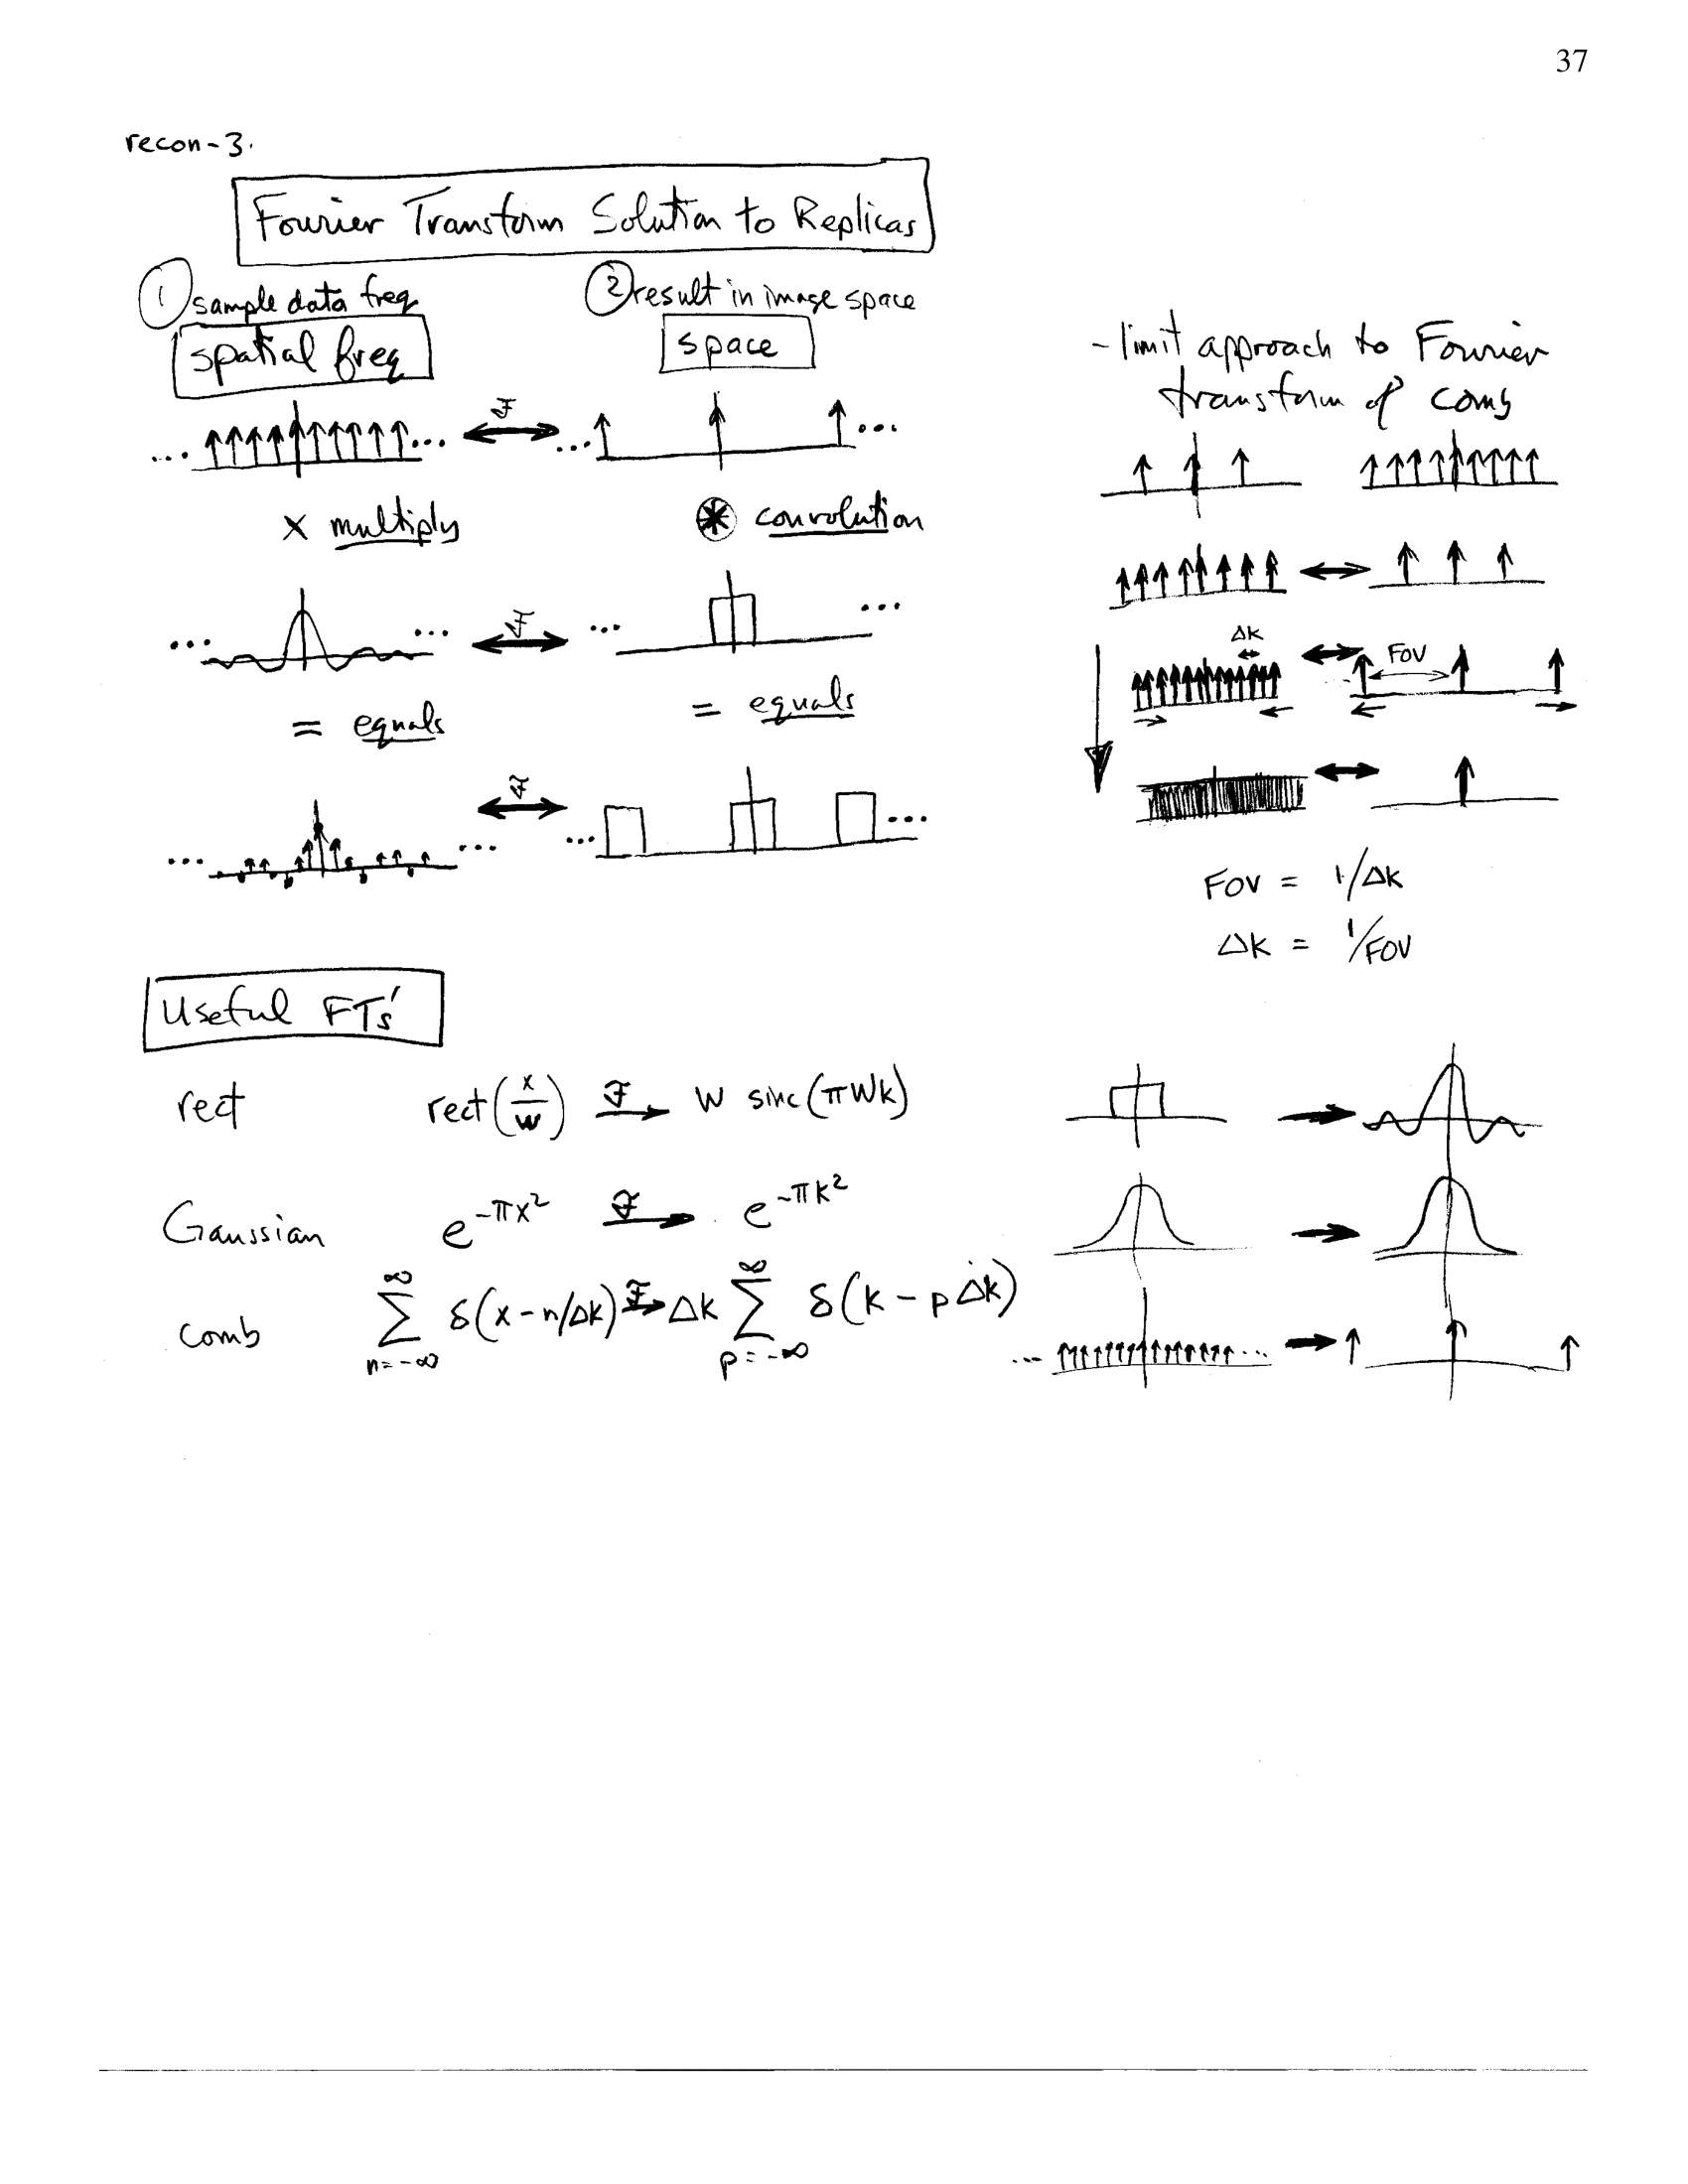 37
recon-3.
Fourier Transform Solution to Replicas
① sample data freq
spatial freq
② result in image space
space
... ... ℱ ... ...
× multiply
⊛ convolution
... ... ℱ ... ...
= equals
= equals
... ... ℱ ... ...
- limit approach to Fourier
transform of comb
Δk
FOV
FOV = 1/Δk
Δk = 1/FOV
Useful FT's
rect rect(x/w) ℱ→ W sinc(πWk)
Gaussian e^{-πx²} ℱ→ e^{-πk²}
comb ∑_{n=-∞}^{∞} δ(x - n/Δk) ℱ→ Δk ∑_{p=-∞}^{∞} δ(k - pΔk)
... ...